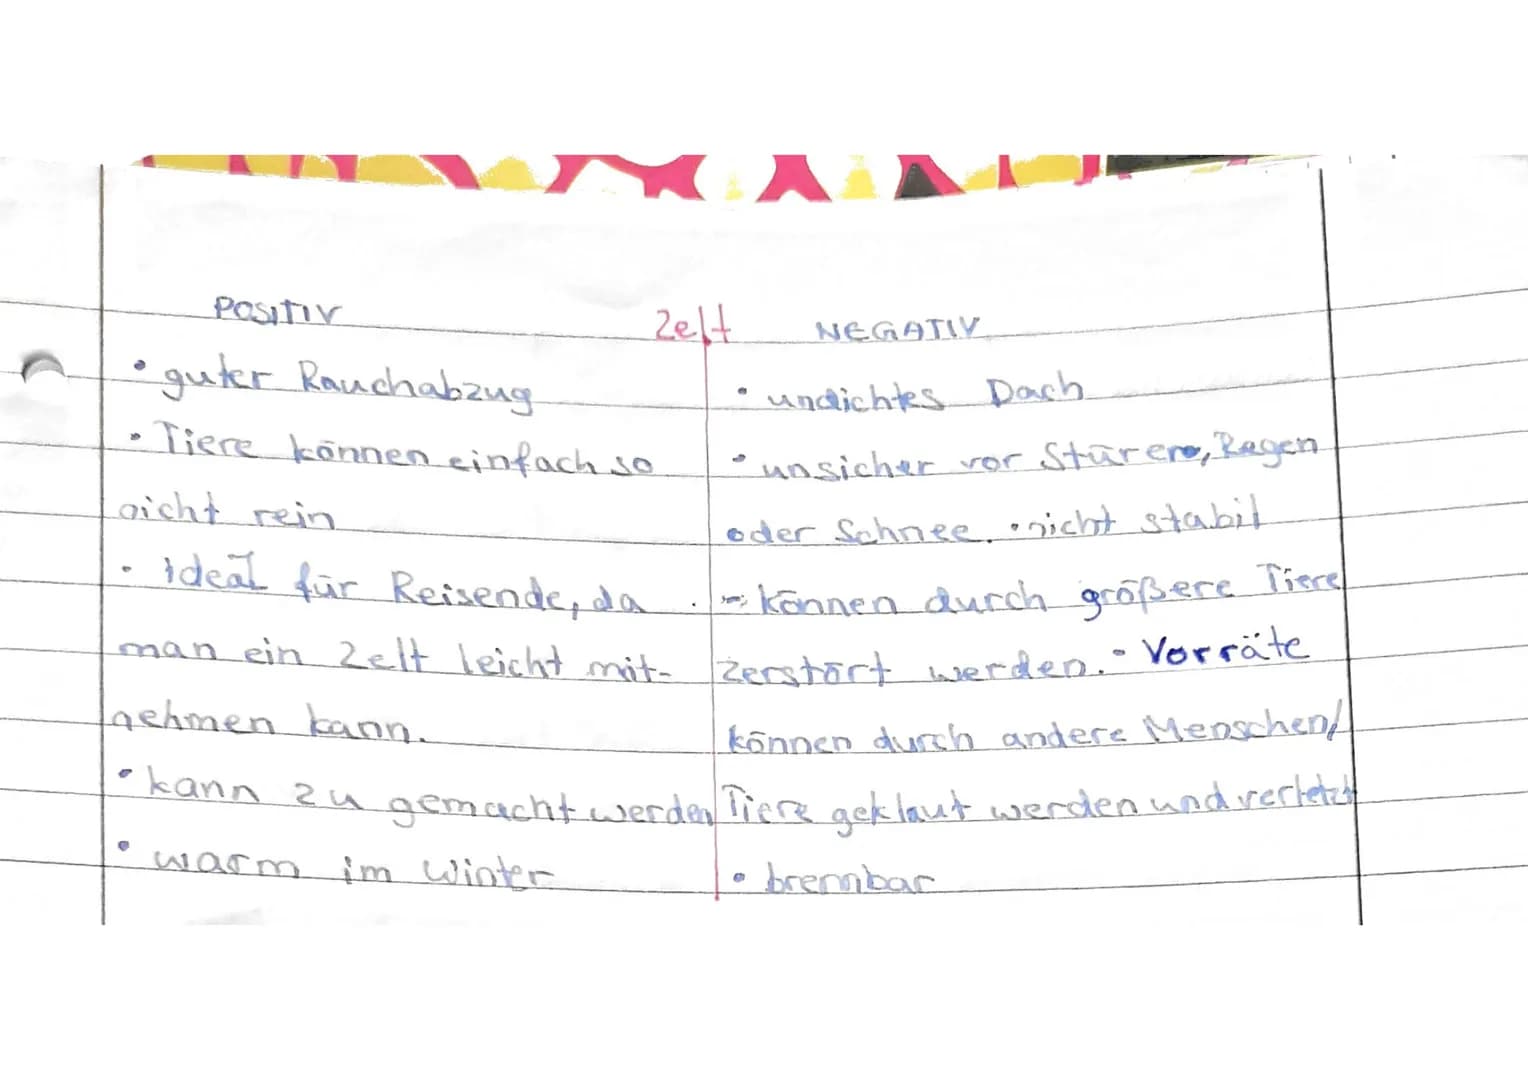 Zelt
POSITIV
• guter Rauchabzug
• Tiere können einfach so
nicht rein
• ideal für Reisende, da
man ein Zelt leicht mit-
nehmen kann.
• kann zu gemacht werden
• warm im Winter
NEGATIV
• undichtes Dach
• unsicher vor Regen
oder Schnee. • nicht stabil
- können durch größere Tiere
zerstört werden. • Vorräte
können durch andere Menschen/
Tiere geklaut werden und verletzt
• brennbar